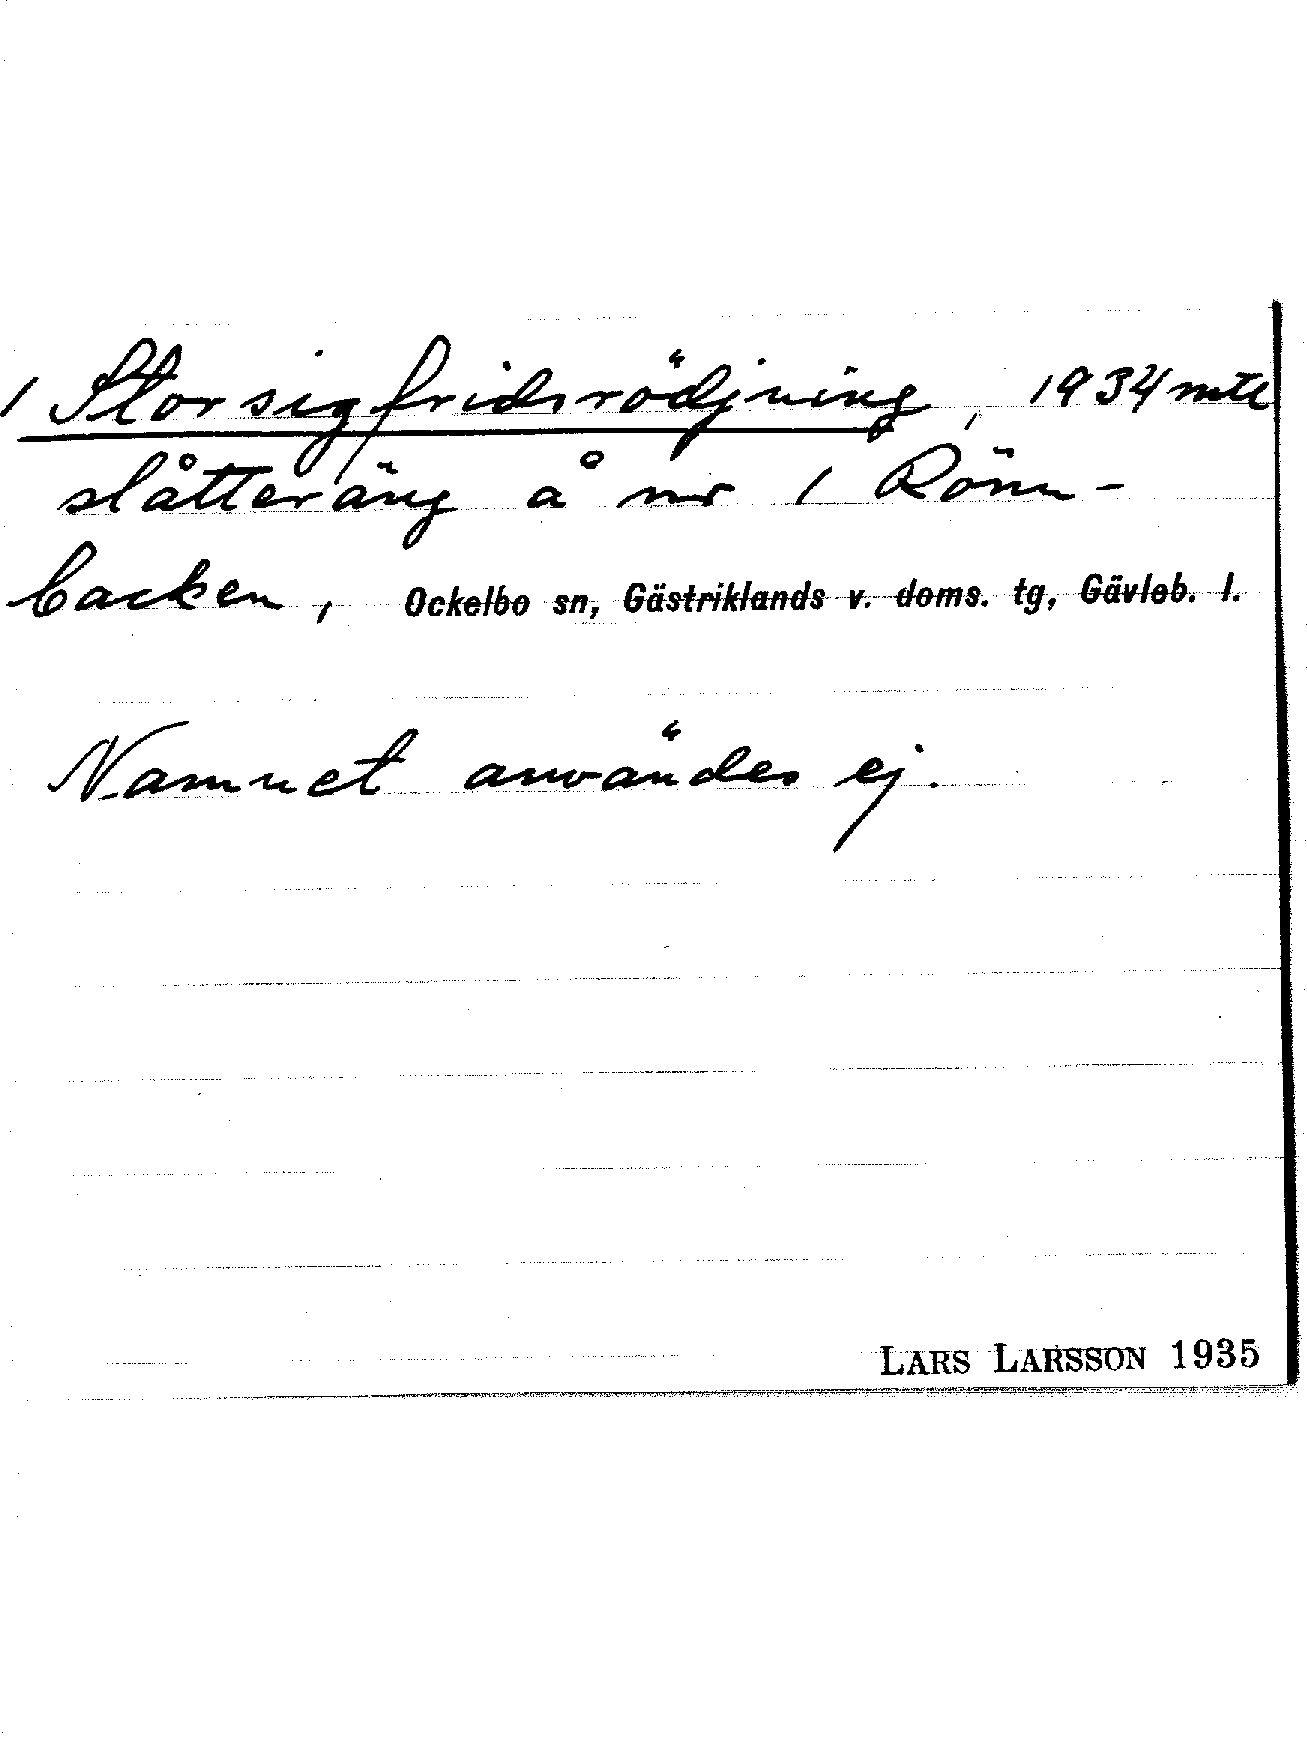 / Storsigfridsrödjning, 1934 mtl
slåtteräng å nr 1 Rönn-
backen, Ockelbo sn, Gästriklands v. doms. tg, Gävleb. l.
Namnet användes ej.
LARS LARSSON 1935